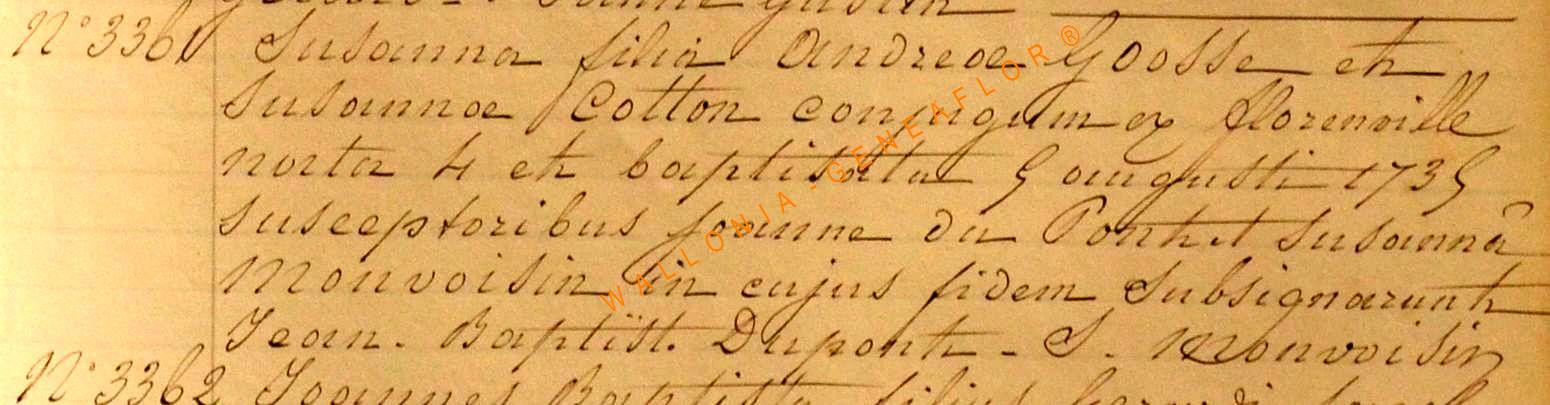 N° 3361 Susanna filia Andreae Goosse et
Susannae Cotton conjugum ex florenville
nata 4 et baptisata 5 augusti 1735
susceptoribus joanne du Pont et Susannâ
Monvoisin in cujus fidem Subsignarunt
Jean-Baptist. Dupont - S. Monvoisin
N° 3362 Joannes Baptista filius
WALLONIA-GENEAFLOR®